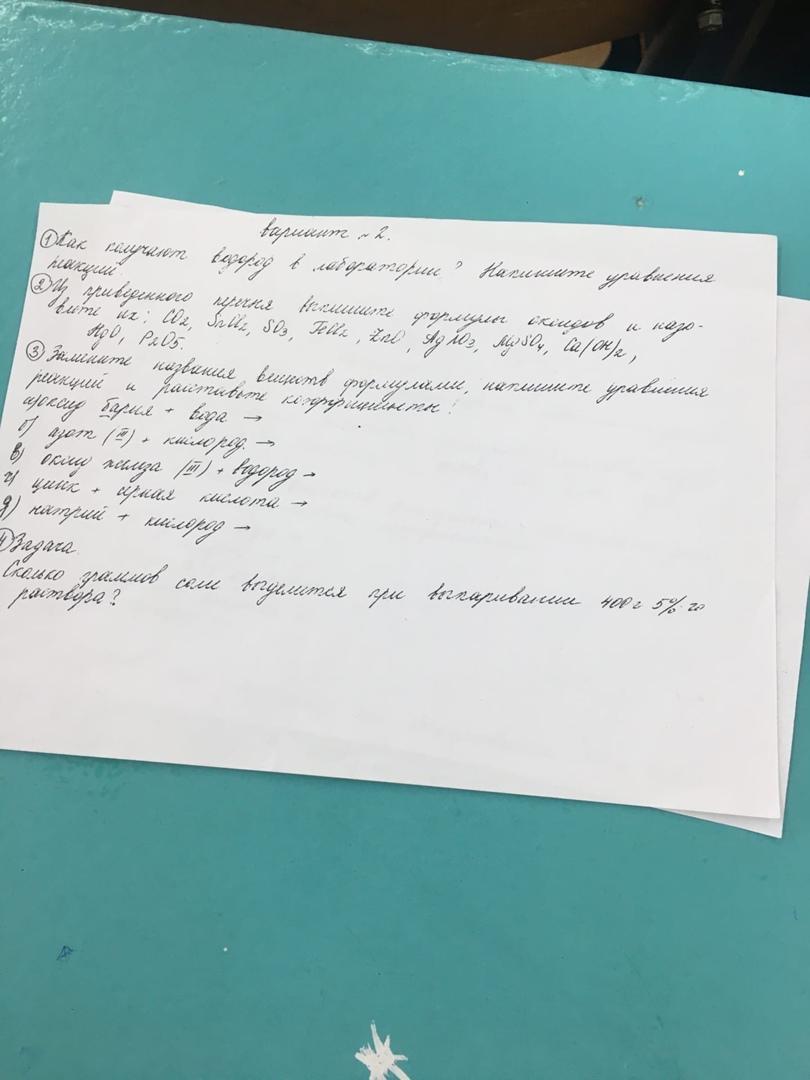 вариант ~ 2.
① Как получают водород в лаборатории? Напишите уравнения
реакций.
② Из приведенного перечня выпишите формулы оксидов и назо-
вите их: CO2, SO3, ZnO, AgNO3, MgSO4, Ca(OH)2,
HgO, P2O5.
③ Замените названия веществ формулами, напишите уравнения
реакций и расставьте коэффициенты:
а) оксид бария + вода →
б) азот (III) + кислород. →
в) оксид железа (III) + водород →
г) цинк + серная кислота →
д) натрий + кислород →
④ Задача.
Сколько граммов соли выделится при выпаривании 400 г 5%-го
раствора?